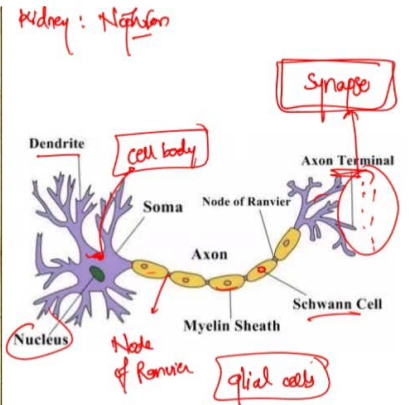 Kidney : Nephron
Synapse
Dendrite
cell body
Axon Terminal
Soma
Node of Ranvier
Axon
Schwann Cell
Myelin Sheath
Nucleus
Node
of Ranvier
glial cells